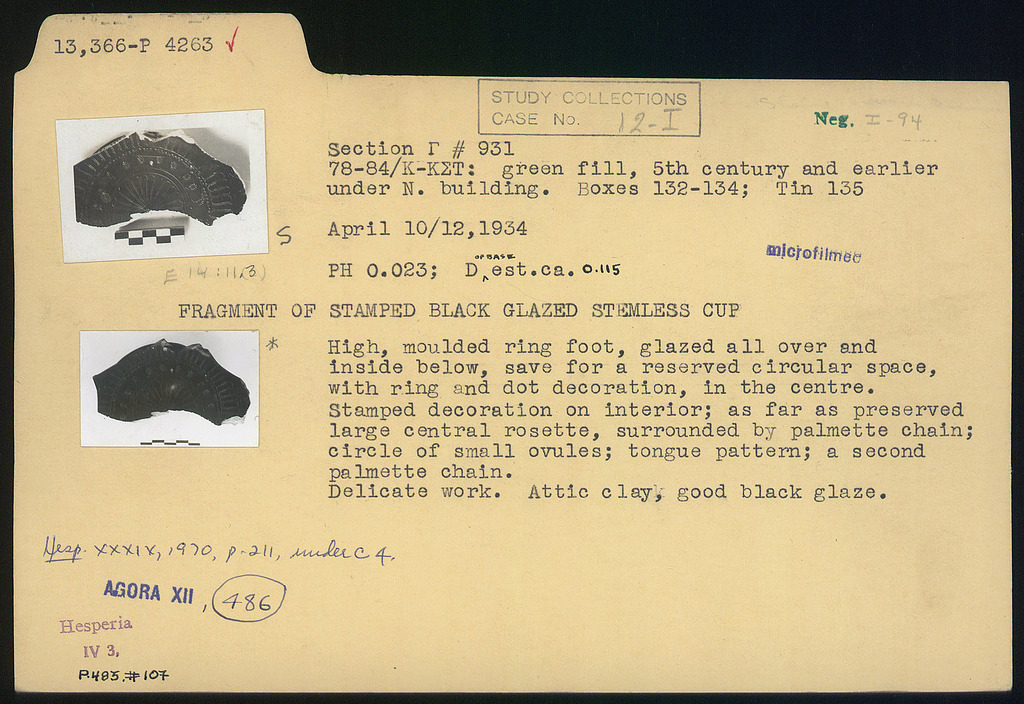 13,366-P 4263 ✓
STUDY COLLECTIONS
CASE No. 12-I
Neg. I-94
Section Γ # 931
78-84/Κ-ΚΣΤ: green fill, 5th century and earlier
under N. building. Boxes 132-134; Tin 135
S
April 10/12,1934
microfilmed
E 14:11(3)
PH 0.023; D OF BASE ^ est.ca. 0.115
FRAGMENT OF STAMPED BLACK GLAZED STEMLESS CUP
*
High, moulded ring foot, glazed all over and
inside below, save for a reserved circular space,
with ring and dot decoration, in the centre.
Stamped decoration on interior; as far as preserved
large central rosette, surrounded by palmette chain;
circle of small ovules; tongue pattern; a second
palmette chain.
Delicate work. Attic clay, good black glaze.
Hesp. XXXIX, 1970, p. 211, under C 4.
AGORA XII, 486
Hesperia
IV 3,
P.485.#107